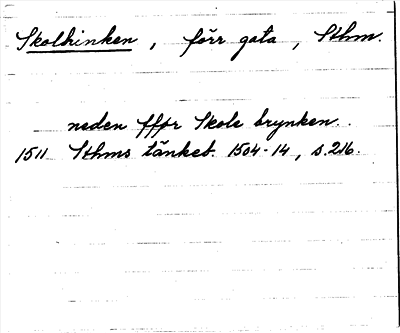 Skolbrinken, förr gata, Sthm.
neden ffør Skole brynken.
1511 Sthms tänkeb. 1504-14, s.216.